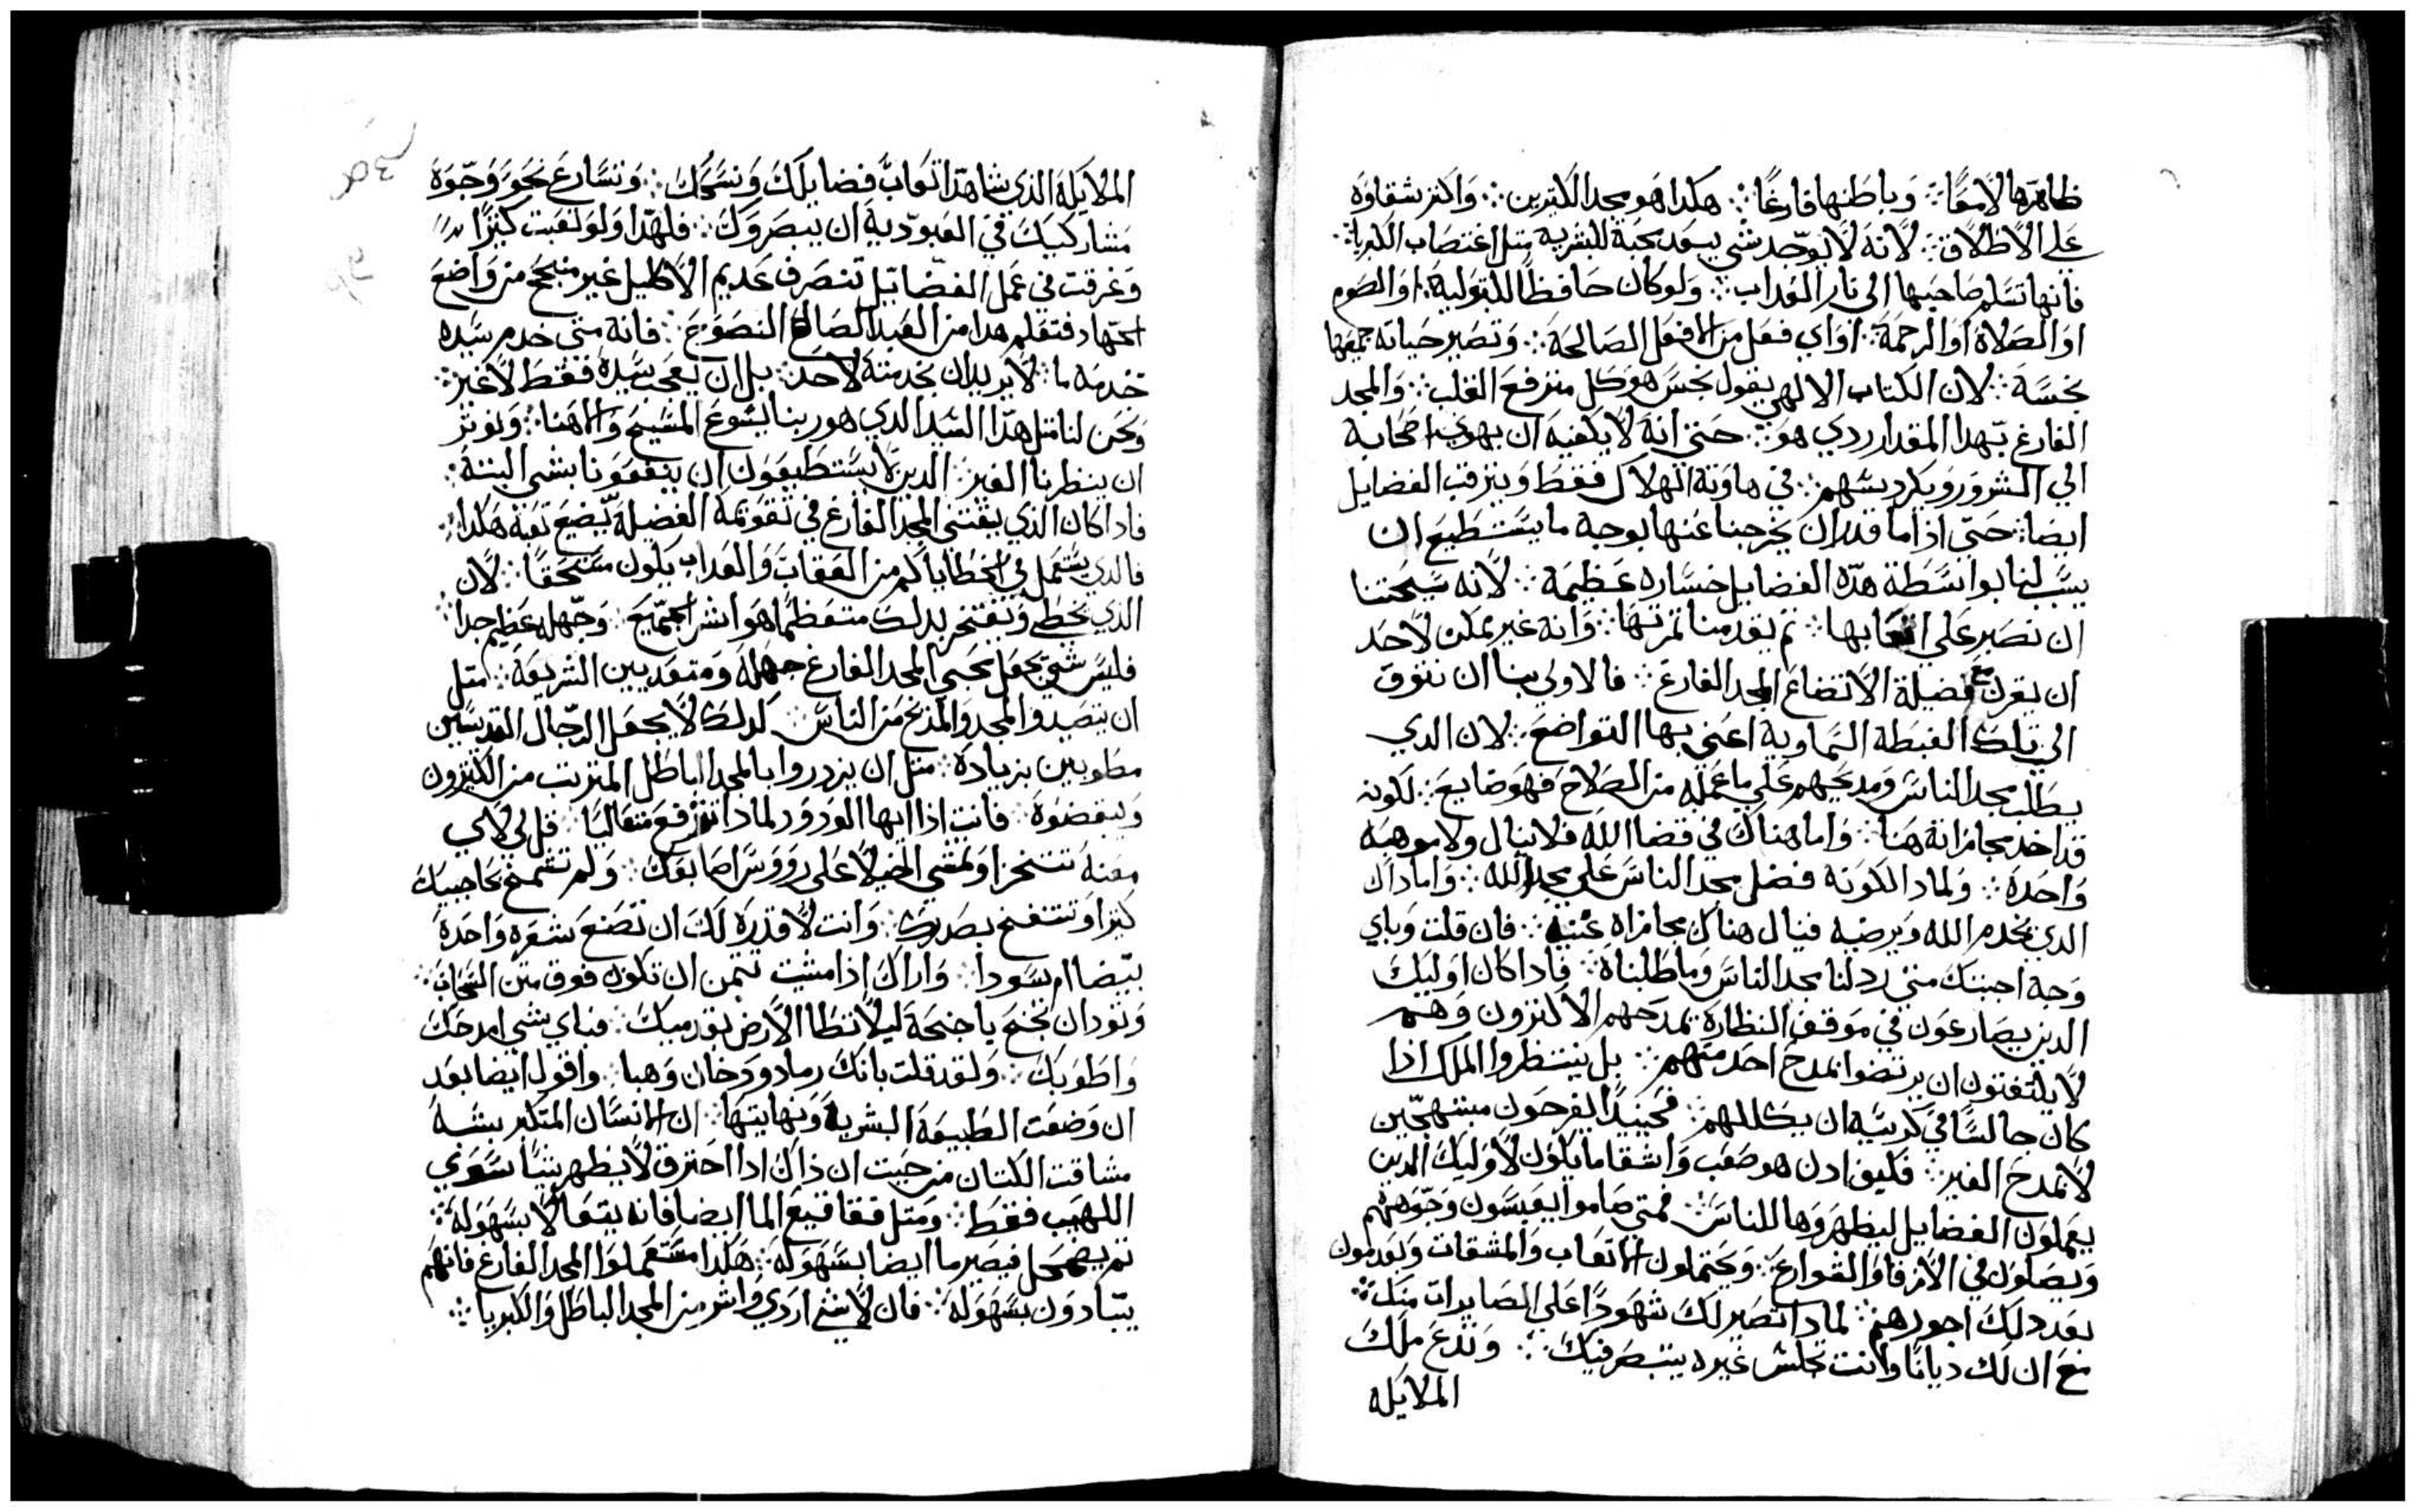 ظاهرها لامعًا ⁘ وباطنها فارغًا ⁘ هكدا هو مجد الكتيرين ⁘ واكتر شقاوه
على الاطلاق ⁘ لانه لا يوجد شي يبعد محبة البشريه متل اغتصاب الكبريا ⁘
فانها تسلم صاحبها الى نار العداب ⁘ ولو كان حافظًا للبتوليه ⁘ او الصوم
او الصلاه او الرحمة ⁘ او اي فعل من الافعل الصالحة ⁘ وتصير حياته جميعها
نجسة ⁘ لان الكتاب الالهي يقول نجس هو كل مترفع القلب ⁘ والمجد
الفارغ بهدا المقدار ردي هو ⁘ حتى انه لا يكفيه ان يهوي اصحابه
الي الشرور ويكردسهم ⁘ في هاوية الهلاك فقط ويترقب الفضايل
ايضا ⁘ حتى اذا ما قدر ان يخرجنا عنها بوجه ما يستطيع ان
يسبب لنا بوانسطة هده الفضايل خساره عظيمة ⁘ لانه سيحتنا
ان نصبر علي اتعابها ⁘ تم يعدمنا تمرتها ⁘ وانه غير ممكن لاحد
ان يقرن مع فضيلة الاتضاع المجد الفارغ ⁘ فالاولى بنا ان نتوق
الى تلك الغبطة السماوية اعني بها التواضع ⁘ لان الدي
يطلب مجد الناس ومديحهم علي ما عمله من الصلاح فهو ضايع ⁘ لكونه
قد اخد مجازاته هنا ⁘ واما هناك في قضا الله فلا ينال ولا موهبه
واحدة ⁘ ولمادا لكونه فضل مجد الناس علي مجد الله ⁘ واما داك
الدي يخدم الله ويرضيه فينال هناك مجازاه غنيه ⁘ فان قلت وباي
وجه اجبتك متى ردلنا مجد الناس وما طلبناه ⁘ فادا كان اوليك
الدين يصارعون في موقف النظارة تمدحهم الاكترون وهم
لا يلتفتون ان يرتضوا بمدح احد منهم ⁘ بل ينتظروا الملك اذا
كان جالسًا في كرسيه ان يكللهم ⁘ فحينيدًا يفرحون مبتهجين
لا بمدح الغير ⁘ فكيف ادن هو صعب واشقا ما يكون لاوليك الدين
يعملون الفضايل ليظهروها للناس ⁘ فمتى صاموا يعبسون وجوههم
ويصلون في الازقا والقوارع ⁘ ويحتملون الاتعاب والمشقات ويعدمون
بعد دلك اجورهم ⁘ لمادا تصير لك شهودًا علي الصايرات منك ⁘
مع ان لك ديانًا وانت تجلس غيره يتبصر فيك ⁘ وتدع ملك
الملايكه
الملايكة الذي شاهدًا اتعاب فضايلك ونسكك ⁘ وتسارع نحو وجوه
مشاركيك في العبودية ان يبصروك ⁘ فلهدا ولو لعبت كتيرًا
وغرقت في عمل الفضايل تنصرف عديم الاكليل غير منجح من واضع
الجهاد فتعلم هدا من العبد الصالح النصوح ⁘ فانه متى خدم سيده
خدمة ما ⁘ لا يريد ان يخدمنه لاحد ⁘ بل ان يعجب سيده فقط لا غير ⁘
ونحن لنا متل هدا السيد الدي هو ربنا يسوع المسيح والاهنا ⁘ ونوتر
ان ينظرنا الغير ⁘ الدين لا يستطيعون ان ينفعونا بشي البتة ⁘
فادا كان الذي يقتني المجد الفارغ في تقويمه الفضيلة يضيع تعبه هكدا ⁘
فالدي يشتمل في الخطايا كم من العقاب والعداب يكون مستحقًا ⁘ لان
الدي يخطى ويفتخر بدلك متعظمًا هو اشر الجميع ⁘ وجهله عظيم جدا ⁘
فليس شي يجعل محبي المجد الفارغ جهله ومتعديين الشريعة ⁘ متل
ان يتصيدوا المجد والمدح من الناس ⁘ كدلك لا يجعل الرجال القديسين
مطوبين بزيادة ⁘ متل ان يزدروا بالمجد الباطل المترتب من الكتيرون
ويبغضوه ⁘ فانت اذا ايها الودود لمادا تترفع متعاليًا ⁘ قل لي لاي
معنة تتنخر او تمشي الخيلا على رووس اصابعك ⁘ ولم تشمخ بحاجبيك
كبرًا وتنتفخ بصدرك ⁘ وانت لا قدرة لك ان تصنع شعرة واحدة
بيضا ام سودا ⁘ واراك اذا مشيت تتمن ان تكون فوق متن السحاب ⁘
وتود ان تجنح باجنحة ليلا تطا الارض بقدميك ⁘ فباي شي امدحك
واطوبك ⁘ ولقد قلت بانك رماد ودخان وهبا ⁘ واقول ايضا بعد
ان وضعت الطبيعة البشرية ونهايتها ⁘ ان الانسان المتكبر يشبه
مشاقت الكتان من حيت ان ذاك ادا احترق لا يظهر شيًا سوي
اللهيب فقط ⁘ ومتل فقاقيع الما ايضا فانه يتعالا بسهوله ⁘
تم يضمحل فيصير ما ايضا بسهوله ⁘ هكدا مستعملوا المجد الفارغ فانهم
يبادون بسهوله ⁘ فان لا شي اردي واشر من المجد الباطل والكبريا ⁘